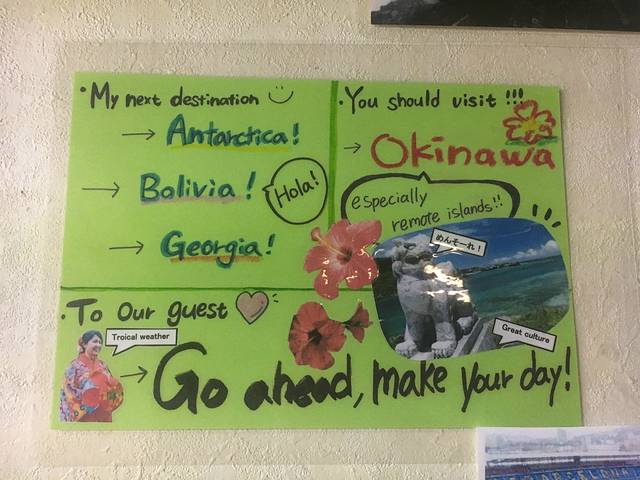 · My next destination
→ Antarctica!
→ Bolivia!
Hola!
→ Georgia!
· You should visit !!!
→ Okinawa
especially
remote islands!!
めんそーれ!
Great culture
· To Our guest
Troical weather
→ Go ahead, make your day!